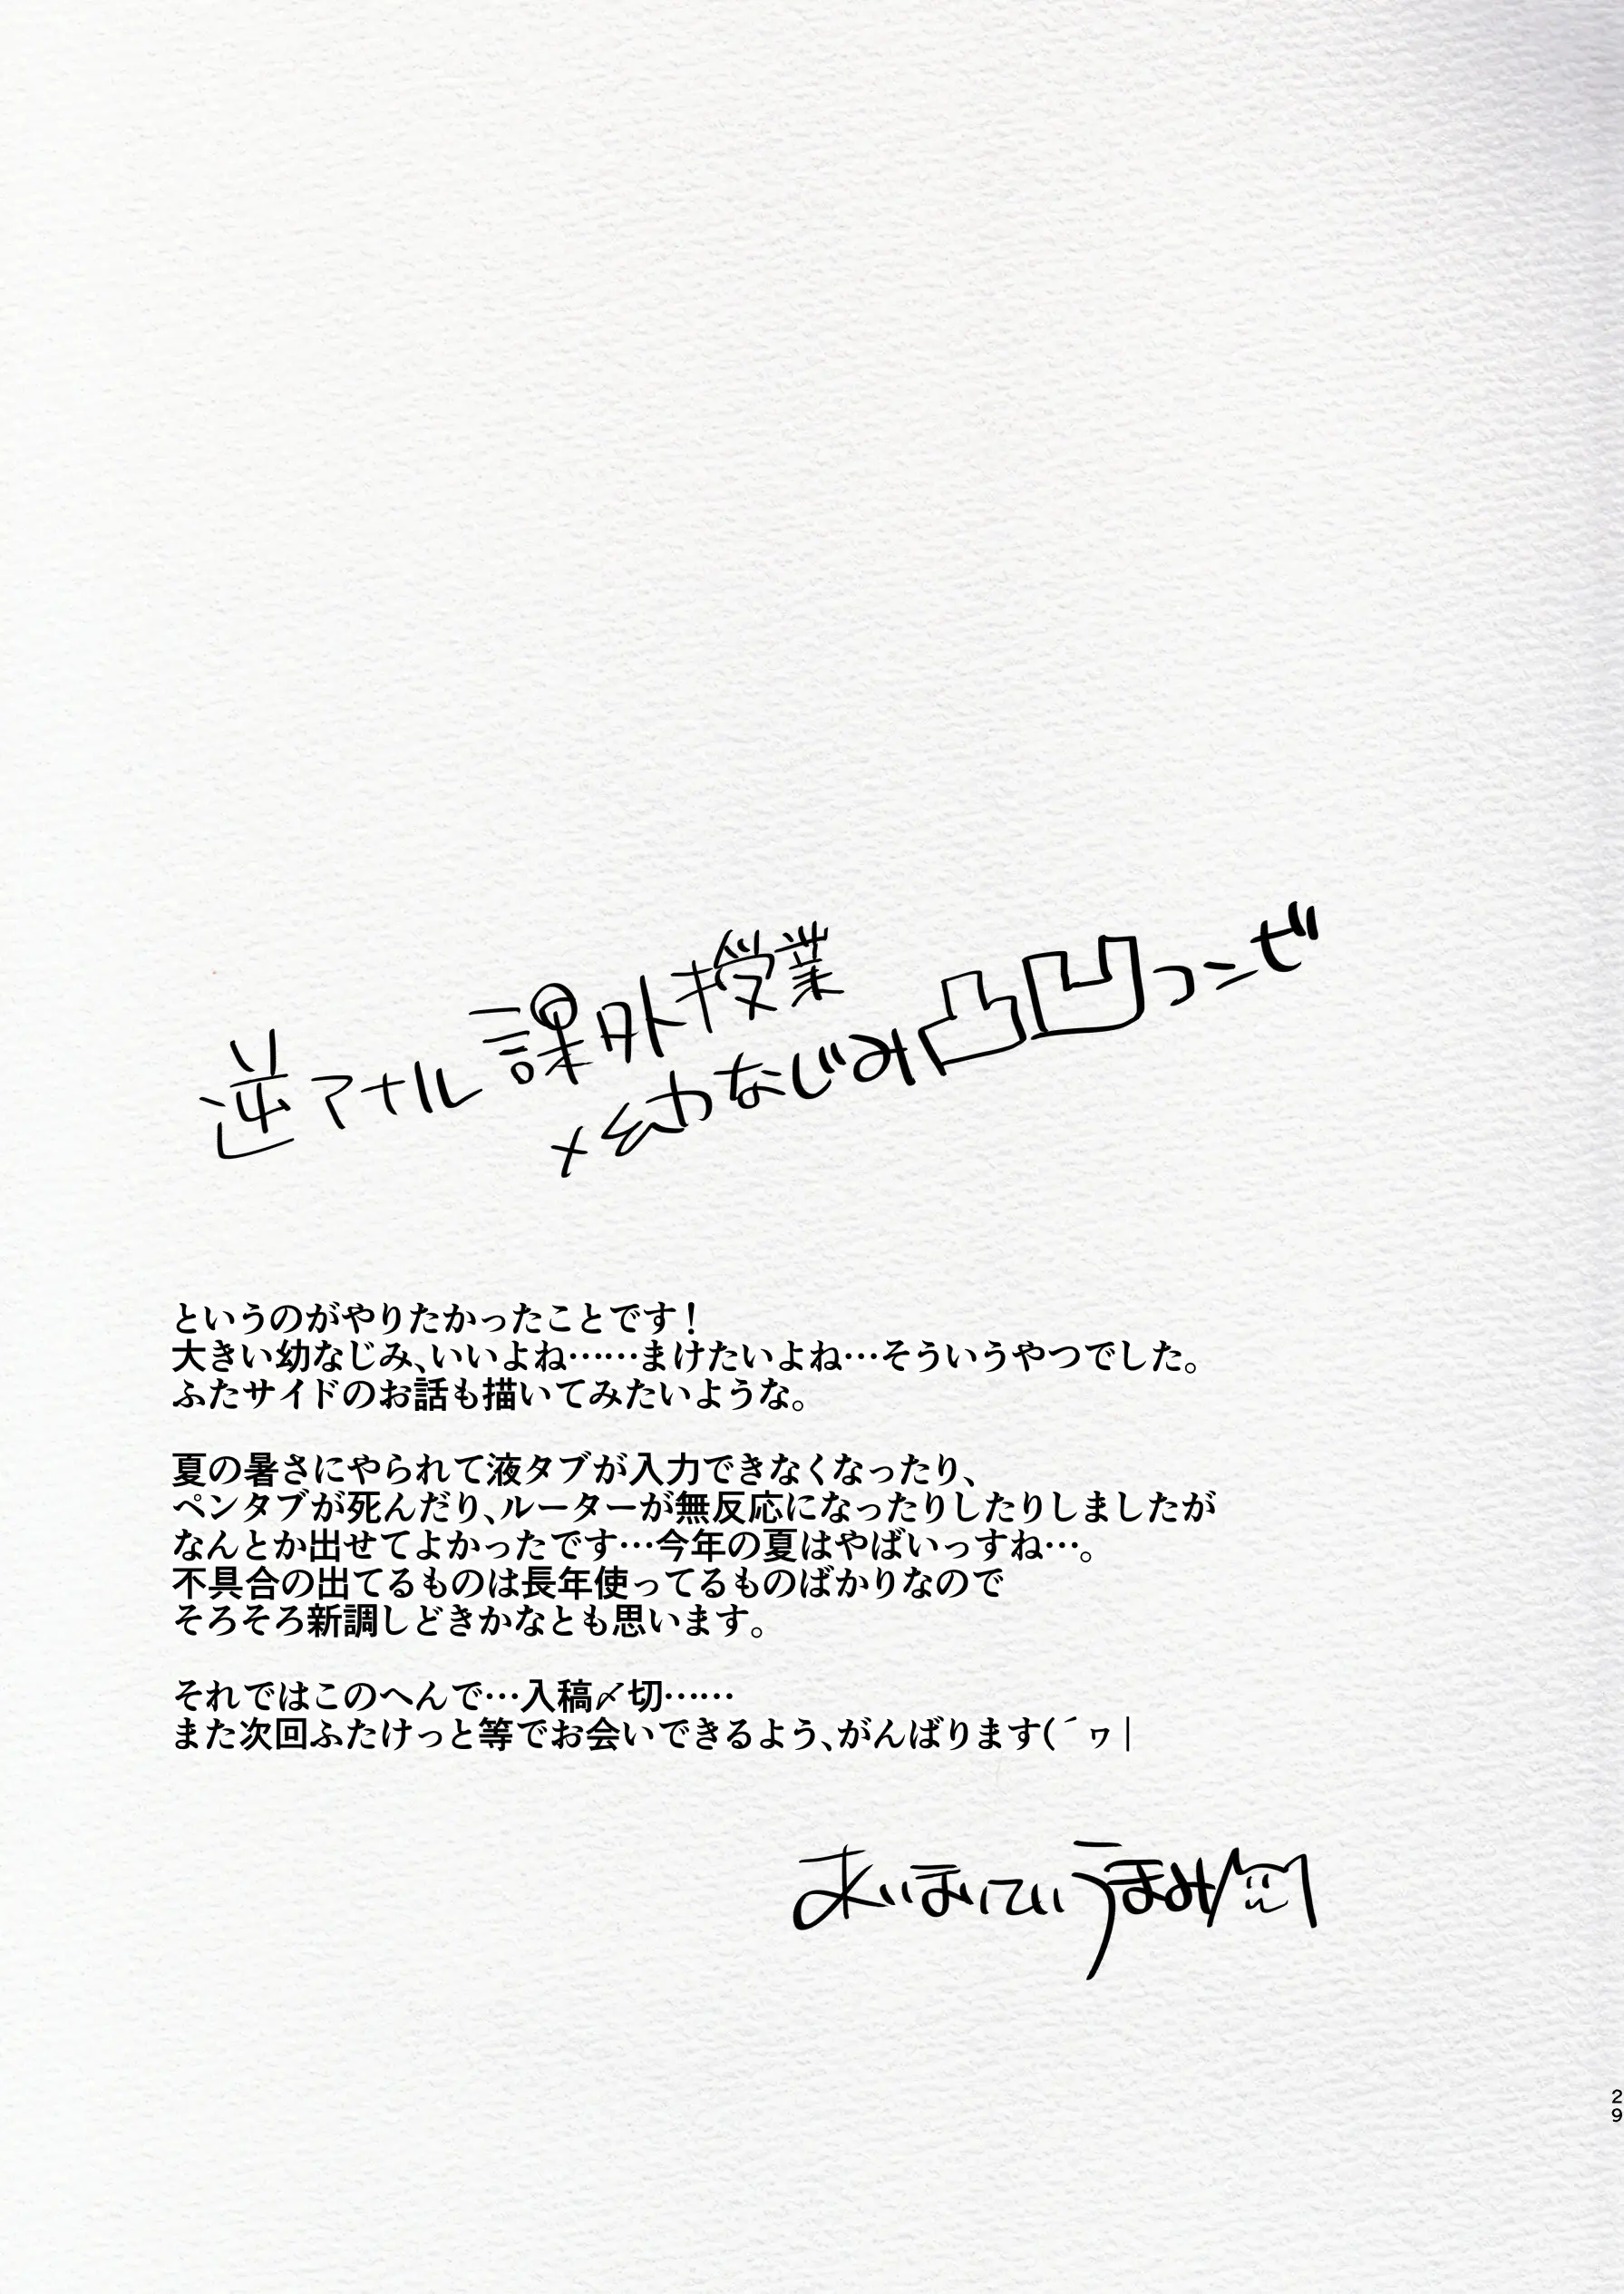 逆アナル課外授業
×幼なじみ凸凹コンビ
というのがやりたかったことです！
大きい幼なじみ、いいよね……まけたいよね…そういうやつでした。
ふたサイドのお話も描いてみたいような。
夏の暑さにやられて液タブが入力できなくなったり、
ペンタブが死んだり、ルーターが無反応になったりしたりしましたが
なんとか出せてよかったです…今年の夏はやばいっすね…。
不具合の出てるものは長年使ってるものばかりなので
そろそろ新調しどきかなとも思います。
それではこのへんで…入稿〆切……
また次回ふたけっと等でお会いできるよう、がんばります(´ヮ|
あいほいてぃうまみ
29